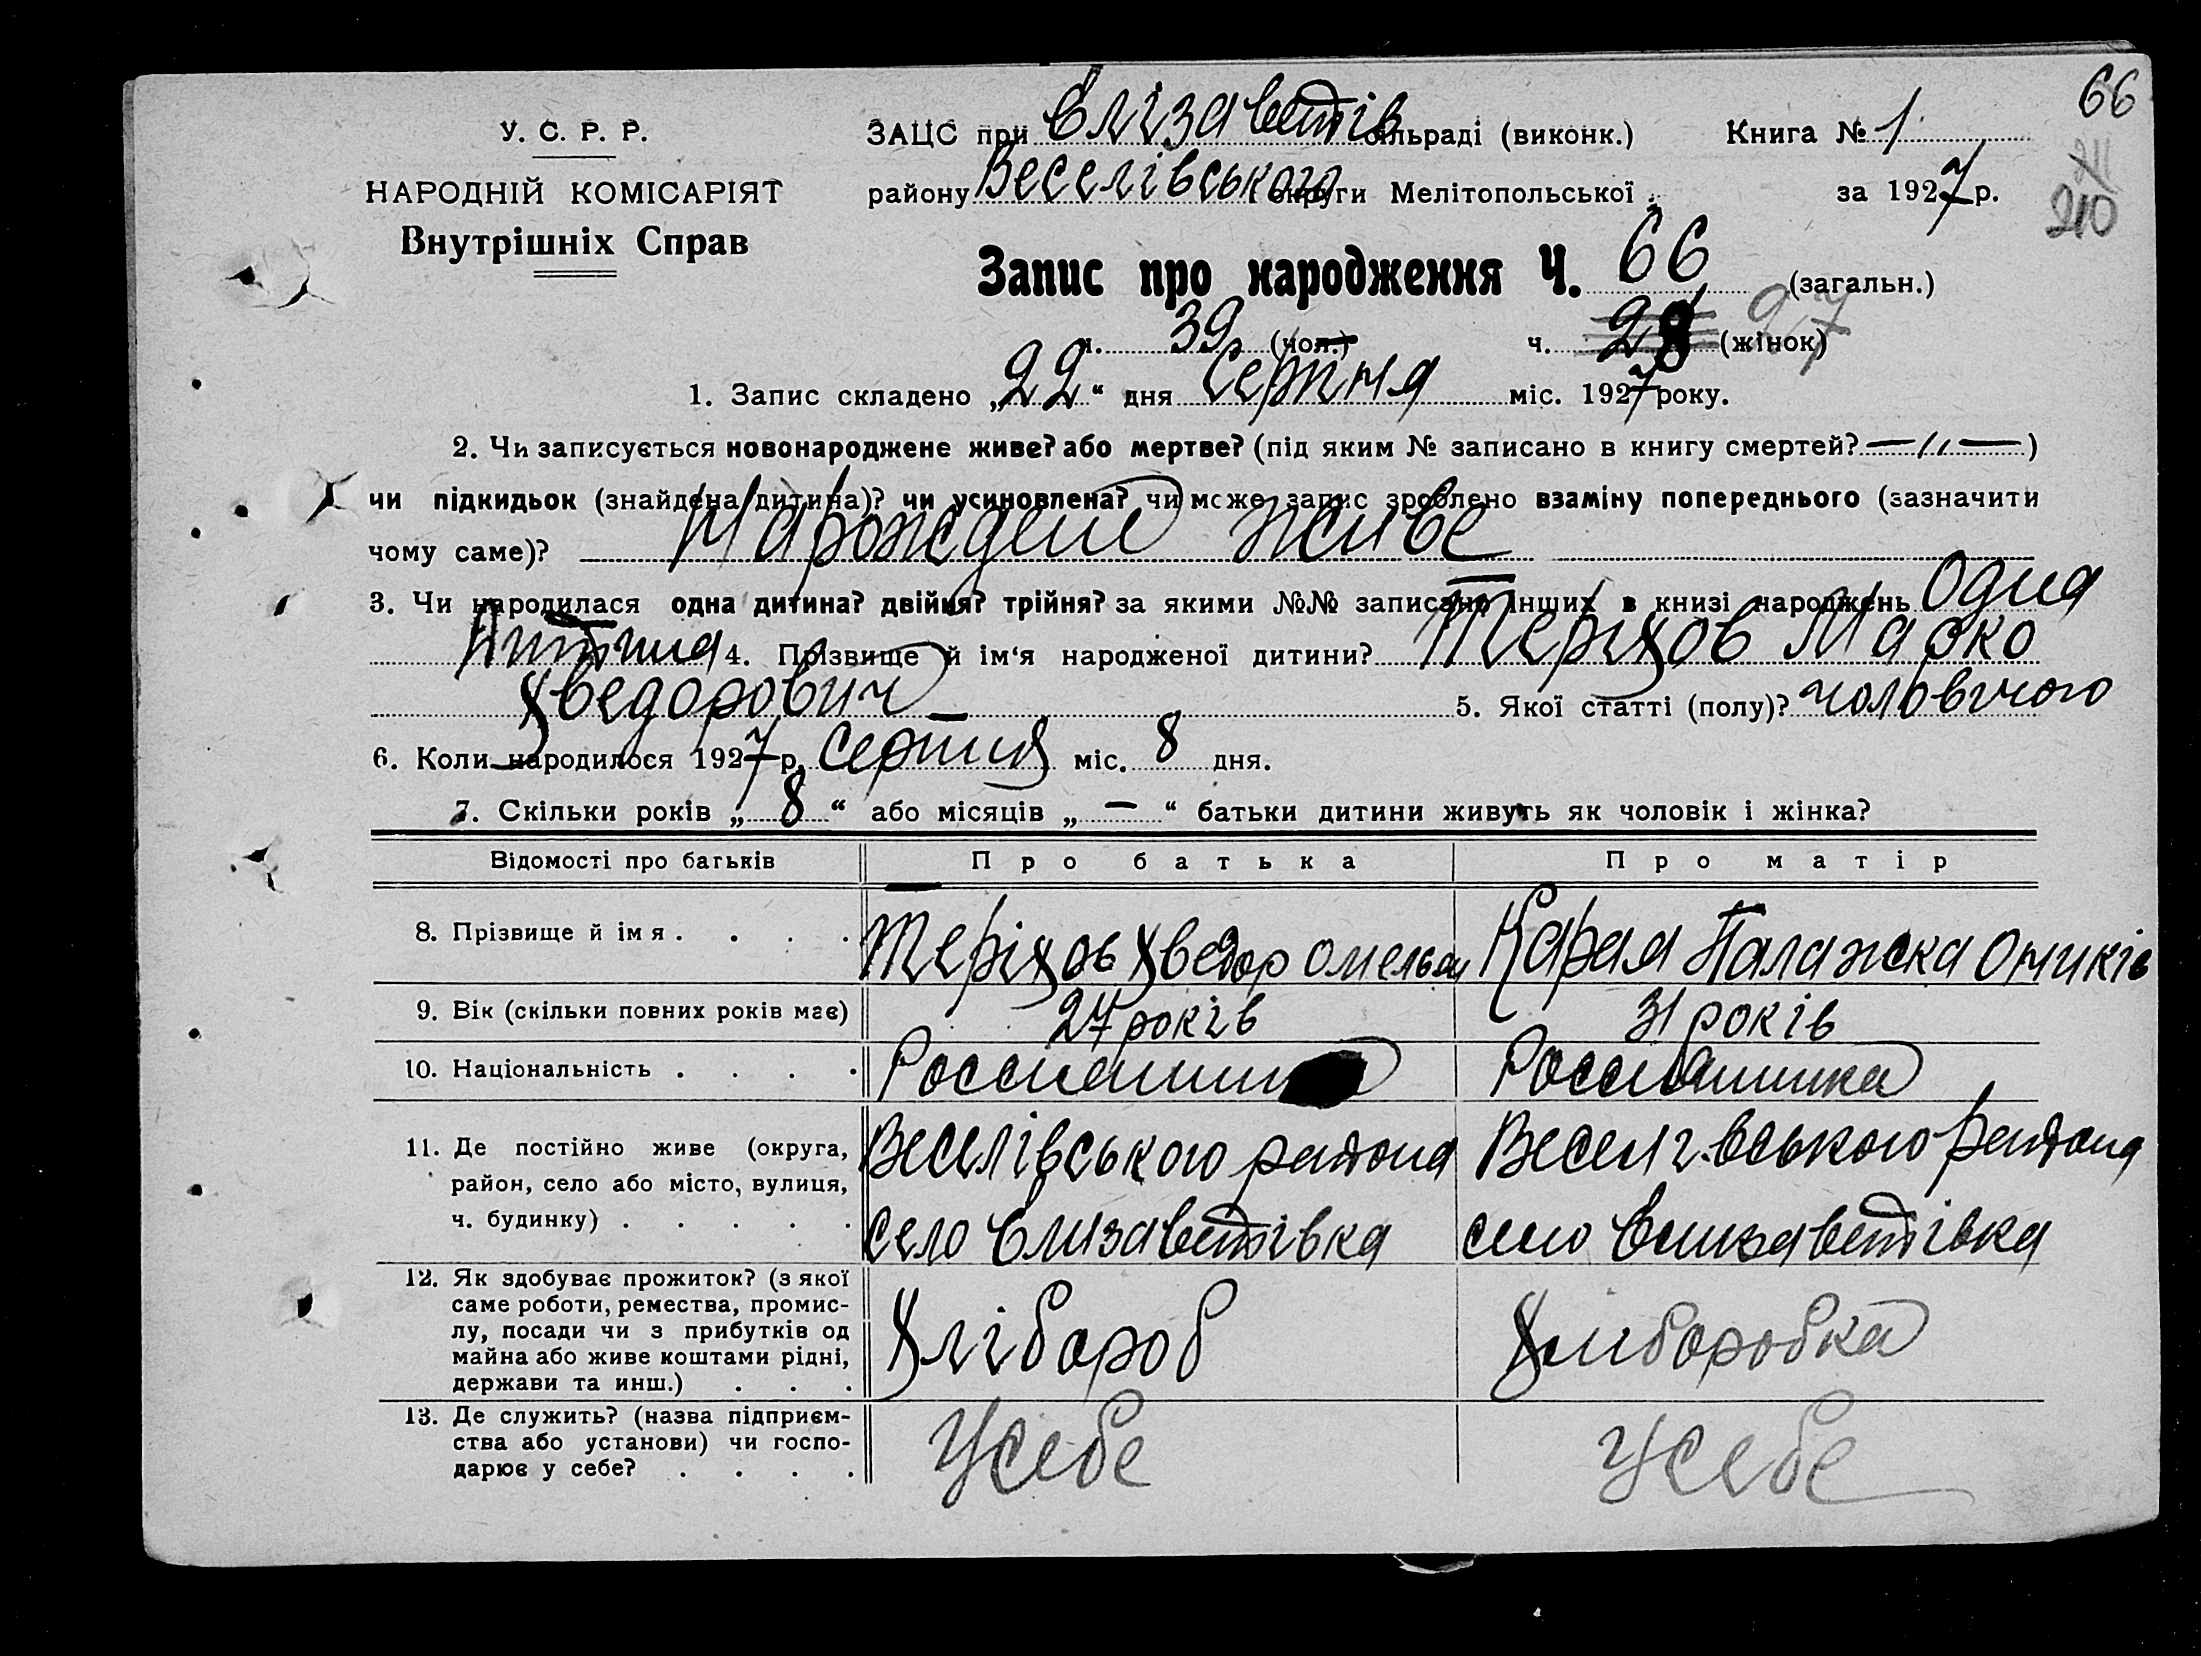 66
У. С. Р. Р.
НАРОДНІЙ КОМІСАРІЯТ
Внутрішніх Справ
ЗАЦС при Єлізаветів сільраді (виконк.) Книга № 1
району Веселівського округи Мелітопольської за 1927 р.
210
Запис про народження Ч. 66 (загальн.)
ч. 39 (чол.) ч. 28 (жінок) 27
1. Запис складено „22“ дня Серпня міс. 1927 року.
2. Чи записується новонароджене живе? або мертве? (під яким № записано в книгу смертей? —〃—)
чи підкидьок (знайдена дитина)? чи усиновлена? чи може запис зроблено взаміну попереднього (зазначити
чому саме)? Нарождене живе
3. Чи народилася одна дитина? двійня? трійня? за якими №№ записано інших в книзі народжень Одна
Дитина 4. Прізвище й ім‘я народженої дитини? Теріхов Марко
Хведорович 5. Якої статті (полу)? чоловичого
6. Коли народилося 1927 р. серпня міс. 8 дня.
7. Скільки років „8“ або місяців „—“ батьки дитини живуть як чоловік і жінка?
Відомості про батьків Про батька Про матір
8. Прізвище й ім я . . . . Теріхов Хведор Омельян Карая Палажка Оникіїв
9. Вік (скільки повних років має) 27 років 31 років
10. Національність . . . . Россиянин Россиянинка
11. Де постійно живе (округа, Веселівського района Веселівського района
район, село або місто, вулиця,
ч. будинку) . . . . . село Єлизаветівка село Єлизаветівка
12. Як здобуває прожиток? (з якої
саме роботи, ремества, промис-
лу, посади чи з прибутків од Хлібороб Хлиборобка
майна або живе коштами рідні,
держави та инш.) . . .
13. Де служить? (назва підприєм-
ства або установи) чи госпо- У себе У себе
дарює у себе? . . . .